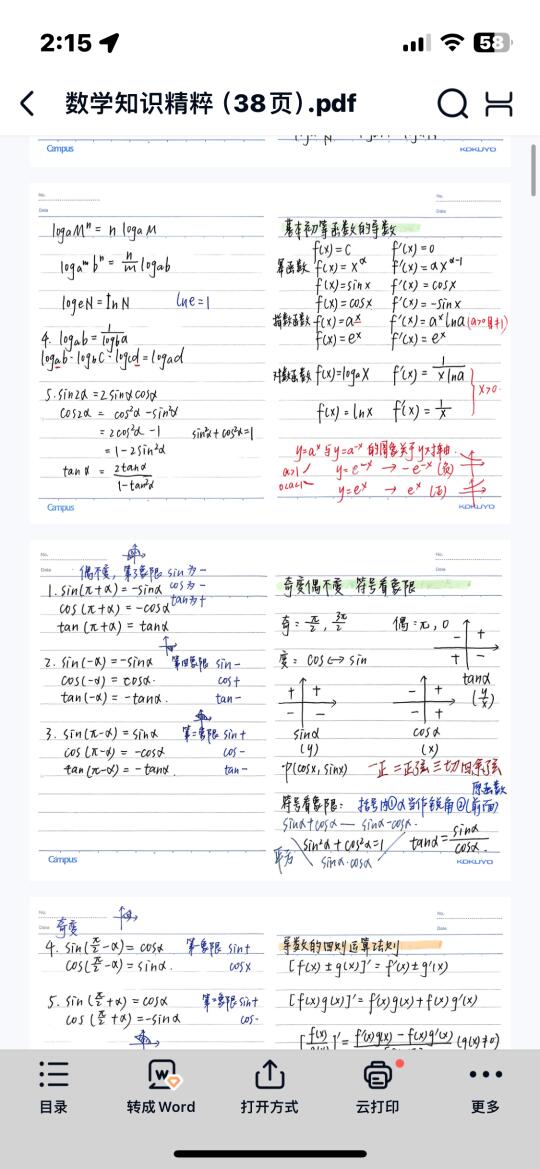 2:15
58
数学知识精粹（38页）.pdf
Campus
KOKUYO
No.
Date
logaMⁿ = n logaM
logaᵐ bⁿ = n/m logab
logeN = ln N lne = 1
4. logab = 1/logba
logab · logbC · logcd = logad
5. sin2α = 2sinαcosα
cos2α = cos²α - sin²α
= 2cos²α - 1 sin²α + cos²α = 1
= 1 - 2sin²α
tanα = 2tanα/1-tan²α
Campus
No.
Date
基本初等函数的导数
f(x) = C f'(x) = 0
幂函数 f(x) = x^α f'(x) = αx^α-1
f(x) = sinx f'(x) = cosx
f(x) = cosx f'(x) = -sinx
指数函数 f(x) = aˣ f'(x) = aˣlna (a>0且≠1)
f(x) = eˣ f'(x) = eˣ
对数函数 f(x) = logaX f'(x) = 1/xlna
x>0
f(x) = lnx f'(x) = 1/x
y=aˣ与y=a⁻ˣ的图象关于y对称.
a>1 y=e⁻ˣ → -e⁻ˣ (负)
0<a<1 y=eˣ → eˣ (正)
KOKUYO
No.
Date
偶不变，第三象限 sin为-
1. sin(π+α) = -sinα cos为-
cos(π+α) = -cosα tan为+
tan(π+α) = tanα
2. sin(-α) = -sinα 第四象限 sin-
cos(-α) = cosα. cos+
tan(-α) = -tanα. tan-
3. sin(π-α) = sinα 第二象限 sin+
cos(π-α) = -cosα cos-
tan(π-α) = -tanα. tan-
Campus
No.
Date
奇变偶不变 符号看象限
奇: π/2, 3π/2 偶: π, 0
变: cos↔sin
- +
+ -
tanα
(y/x)
+ + - +
- - - +
sinα cosα
(y) (x)
P(cosx, sinx) 一正二正弦三切四余弦
原函数
符号看象限: 括号内①α当作锐角②(前面)
sinα+cosα — sinα-cosα.
平方 sin²α + cos²α = 1 tanα = sinα/cosα.
sinα·cosα
KOKUYO
No.
Date
奇变
4. sin(π/2-α) = cosα 第一象限 sin+
cos(π/2-α) = sinα. cosx
5. sin(π/2+α) = cosα 第二象限 sin+
cos(π/2+α) = -sinα cos-
No.
Date
导数的四则运算法则
[f(x) ± g(x)]' = f'(x) ± g'(x)
[f(x)g(x)]' = f'(x)g(x) + f(x)g'(x)
[f(x)/g(x)]' = f'(x)g(x) - f(x)g'(x) (g(x)≠0)
目录
转成Word
打开方式
云打印
更多